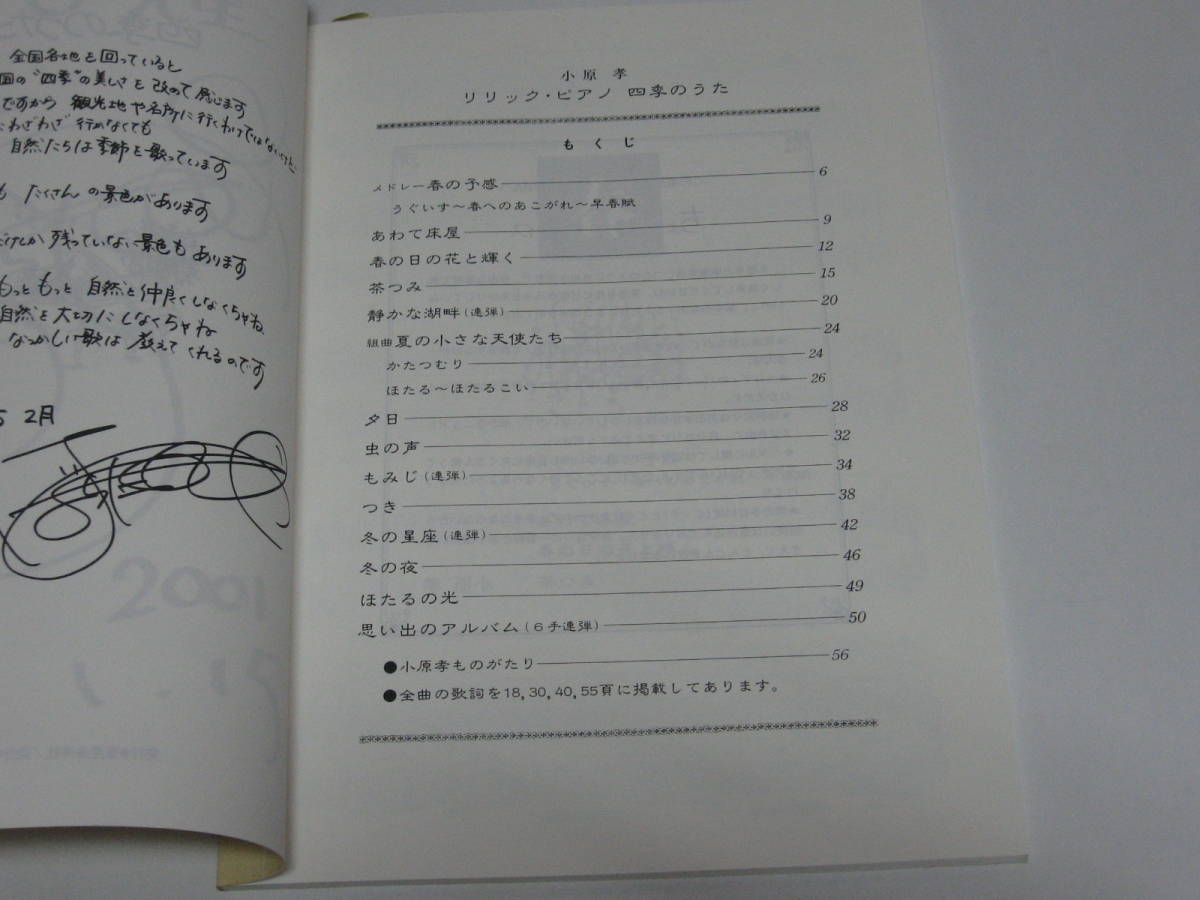 全国各地を回っていると
国の"四季"の美しさを 改めて 感じます
ですから 観光地や名所に行くわけではないけれど
わざわざ 行かなくても
自然たちは季節を歌っています
も たくさん の景色があります
だけしか 残っていない 景色も あります
もっと もっと 自然と仲良くしなくちゃね、
自然を大切にしなくちゃね
なつかしい歌は 教えて くれるのです
5 2月
2001
小原 孝
リリック・ピアノ 四季のうた
もくじ
メドレー春の予感 6
うぐいす〜春へのあこがれ〜早春賦
あわて床屋 9
春の日の花と輝く 12
茶つみ 15
静かな湖畔(連弾) 20
組曲 夏の小さな天使たち 24
かたつむり 24
ほたる〜ほたるこい 26
夕日 28
虫の声 32
もみじ(連弾) 34
つき 38
冬の星座(連弾) 42
冬の夜 46
ほたるの光 49
思い出のアルバム(6手連弾) 50
●小原孝ものがたり 56
●全曲の歌詞を18,30,40,55頁に掲載してあります。